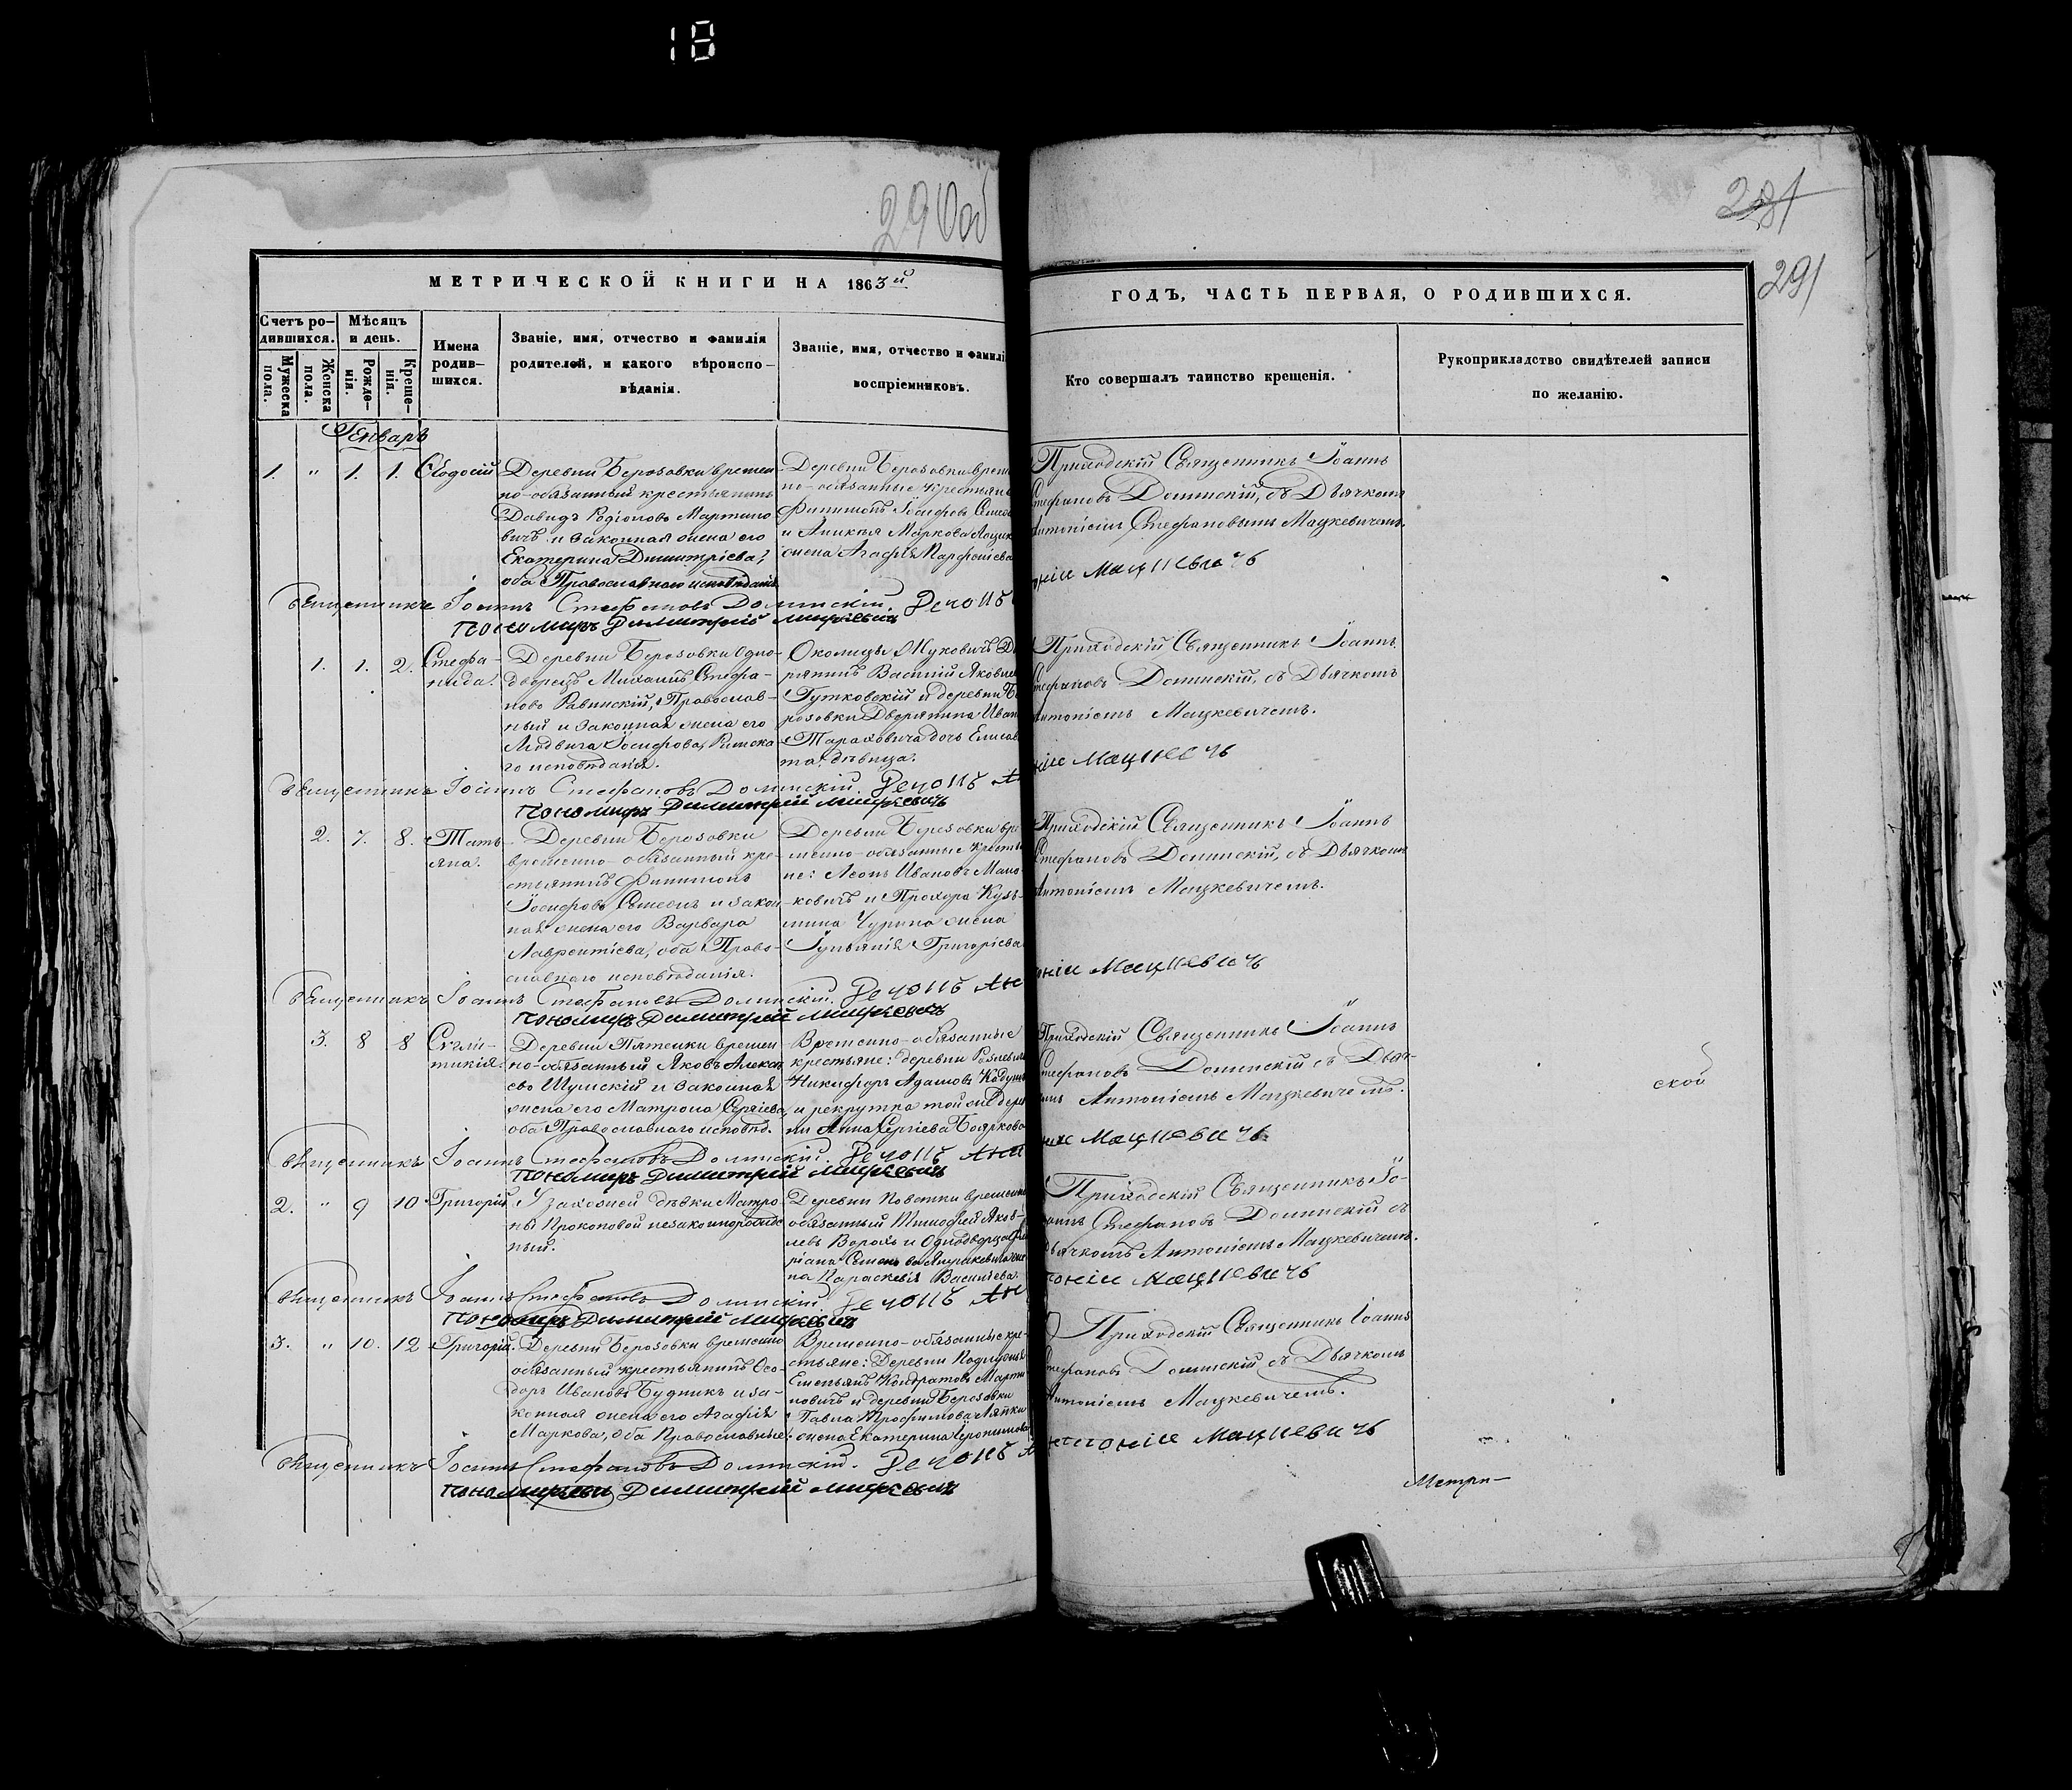 18
290об
281
291
МЕТРИЧЕСКОЙ КНИГИ НА 1863й
ГОДЪ, ЧАСТЬ ПЕРВАЯ, О РОДИВШИХСЯ.
Счетъ ро-
дившихся.
Мужеска
пола.
Женска
пола.
Мѣсяцъ
и день.
Рожде-
нія.
Креще-
нія.
Имена
родив-
шихся.
Званіе, имя, отчество и фамилія
родителей, и какого вѣроиспо-
вѣданія.
Званіе, имя, отчество и фамилі
воспріемниковъ.
Кто совершалъ таинство крещенія.
Рукоприкладство свидѣтелей записи
по желанію.
Генварь
1. " 1. 1. Ѳеодосій
Деревни Березовки времен-
но-обязанный крестьянинъ
Давидъ Родіоновъ Мартино-
вичъ и законная жена его
Екатерина Димитріева,
оба Православнаго исповѣданія.
Деревни Березовки врем
но-обязанные крестьяне
Филимонъ Іосифовъ
и Маркова
жена Агафія Парфеніева
Приходскій Священникъ Іоаннъ
Стефановъ Долинскій, съ Дьячкомъ
Антоніемъ Стефановымъ Мацкевичемъ.
Священникъ Іоаннъ Стефановъ Долинскій. Дечокъ
оній Мацкевичъ
Пономарь Димитрій Мицкевичъ
1. 1. 2. Стефа-
нида.
Деревни Березовки Одно-
дворецъ Михаилъ Стефа-
новъ Равинскій, Православ-
ный и законная жена его
Людвига Іосифова, Римска-
го исповѣданія.
Околицы Жуковичъ Дво
рянинъ Василій Яковлев
Гутковскій и деревни Бе
розовки Дворянина Иван
Тараховича дочь Елисаве
та, дѣвица.
Приходскій Священникъ Іоаннъ
Стефановъ Долинскій, съ Дьячкомъ
Антоніемъ Мацкевичемъ.
Священникъ Іоаннъ Стефановъ Долинскій. Дечокъ Ан
ній Мацкевичъ
Пономарь Димитрій Мицкевичъ
2. 7. 8. Тать-
яна.
Деревни Березовки
временно-обязанный кре-
стьянинъ Филимонъ
Іосифовъ и закон-
ная жена его Варвара
Лаврентіева, оба Право-
славнаго исповѣданія.
Деревни Березовки вре
менно-обязанные крестья
не: Леонъ Ивановъ Мано-
ковичъ и Прохора Кузь-
мина Чурина жена
Іуліянія Григоріева
Приходскій Священникъ Іоаннъ
Стефановъ Долинскій, съ Дьячкомъ
Антоніемъ Мацкевичемъ.
Священникъ Іоаннъ Стефановъ Долинскій. Дечокъ Ан
оній Мацкевичъ
Пономарь Димитрій Мицкевичъ
3. 8 8 Сѵгли-
тикія.
Деревни Пятенки времен-
но-обязанный Яковъ Алексѣ
евъ Шумскій и законная
жена его Матрона Сергіева,
оба Православнаго исповѣд.
Временно-обязанные
крестьяне: деревни
Никифоръ Адамовъ
и рекрутка той же дерев
ни Анна Сергіева Бояркова
Приходскій Священникъ Іоаннъ
Стефановъ Долинскій съ Дьяч-
комъ Антоніемъ Мацкевичемъ.
Священникъ Іоаннъ Стефановъ Долинскій. Дечокъ Ант
оній Мацкевичъ
Пономарь Димитрій Мицкевичъ
ской
2. " 9 10 Григорій.
У захожей дѣвки Матро-
ны Прокоповой незаконнорожде
ный.
Деревни Поветки временно
обязанный Тимофей Яков-
левъ Ворохъ и Однодворца
ріана Семенова же
на Параскевія Васильева
Приходскій Священникъ Іо-
аннъ Стефановъ Долинскій съ
Дьячкомъ Антоніемъ Мацкевичемъ.
Священникъ Іоаннъ Стефановъ Долинскій. Дечокъ Ан
тоній Мацкевичъ
Пономарь Димитрій Мицкевичъ
3. " 10. 12 Григорій.
Деревни Березовки временно
обязанный крестьянинъ Ѳео-
доръ Ивановъ Будникъ и за-
конная жена его Агафія
Маркова, оба Православные.
Временно-обязанные кре-
стьяне: Деревни
Емельянъ Кондратовъ Марти
новичъ и деревни Березовки
Павла Трофимова
жена Екатерина Іеронимова
Приходскій Священникъ Іоаннъ
Стефановъ Долинскій съ Дьячкомъ
Антоніемъ Мацкевичемъ.
Священникъ Іоаннъ Стефановъ Долинскій. Дечокъ А
нтоній Мацкевичъ
Пономарь Димитрій Мицкевичъ
Метри-